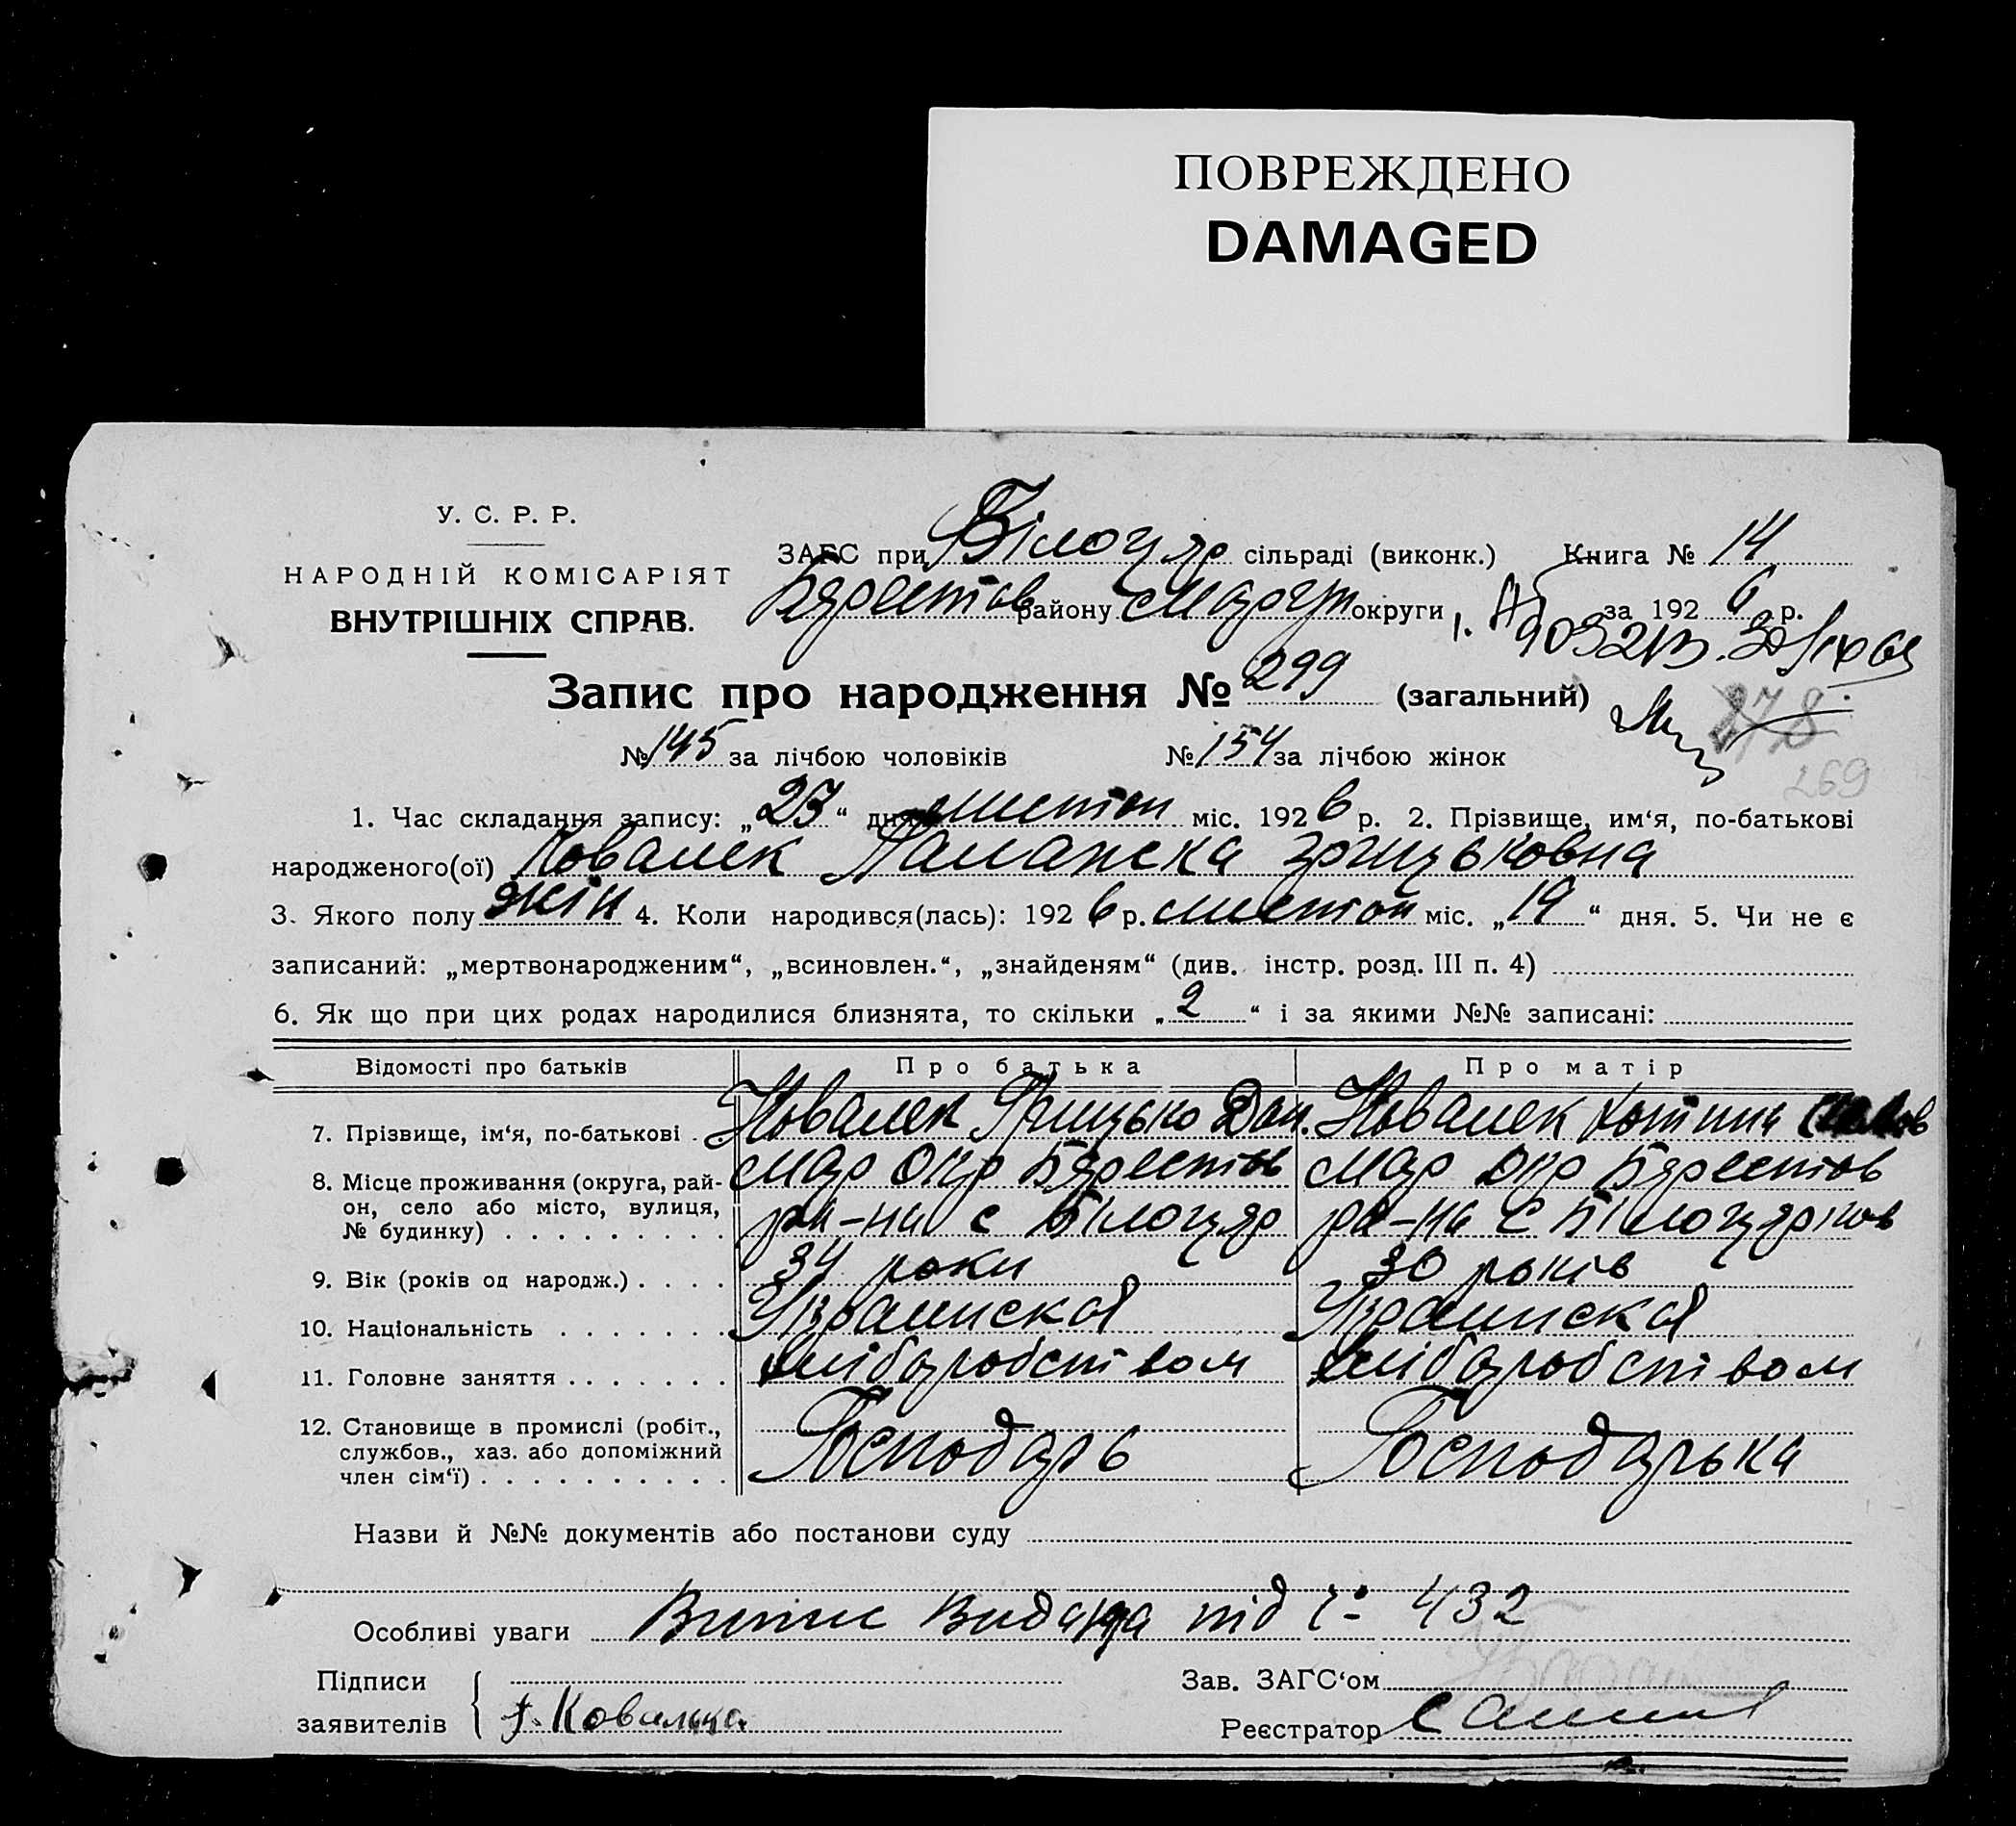 ПОВРЕЖДЕНО
DAMAGED
У. С. Р. Р.
НАРОДНІЙ КОМІСАРІЯТ
ВНУТРІШНІХ СПРАВ.
ЗАГС при Білоцяр сільраді (виконк.) Книга № 14
району округи за 192 6 р.
Запис про народження № 299 (загальний)
278
269
№ 145 за лічбою чоловіків № 154 за лічбою жінок
1. Час складання запису: „23“ дня листоп міс. 1926 р. 2. Прізвище, им‘я, по-батькові
народженого(ої) Ковалек Грицьковна
3. Якого полу жін 4. Коли народився(лась): 1926 р. листоп міс. „19“ дня. 5. Чи не є
записаний: „мертвонародженим“, „всиновлен.“, „знайденям“ (див. інстр. розд. III п. 4)
6. Як що при цих родах народилися близнята, то скільки „2“ і за якими №№ записані:
Відомості про батьків Про батька Про матір
7. Прізвище, ім‘я, по-батькові Ковалек Грицько Дан. Ковалек
8. Місце проживання (округа, рай- Мар Окр Бярестов Мар Окр Бярестов
он, село або місто, вулиця, ра-на с Білоцяр ра-на с
№ будинку)
9. Вік (років од народж.) 34 роки 30 років
10. Національність
11. Головне заняття хлібаробством хлібаробством
12. Становище в промислі (робіт., Господарь Господарька
службов., хаз. або допоміжний
член сім‘ї)
Назви й №№ документів або постанови суду
Особливі уваги Випис під 432
Підписи Зав. ЗАГС‘ом
заявителів Реєстратор